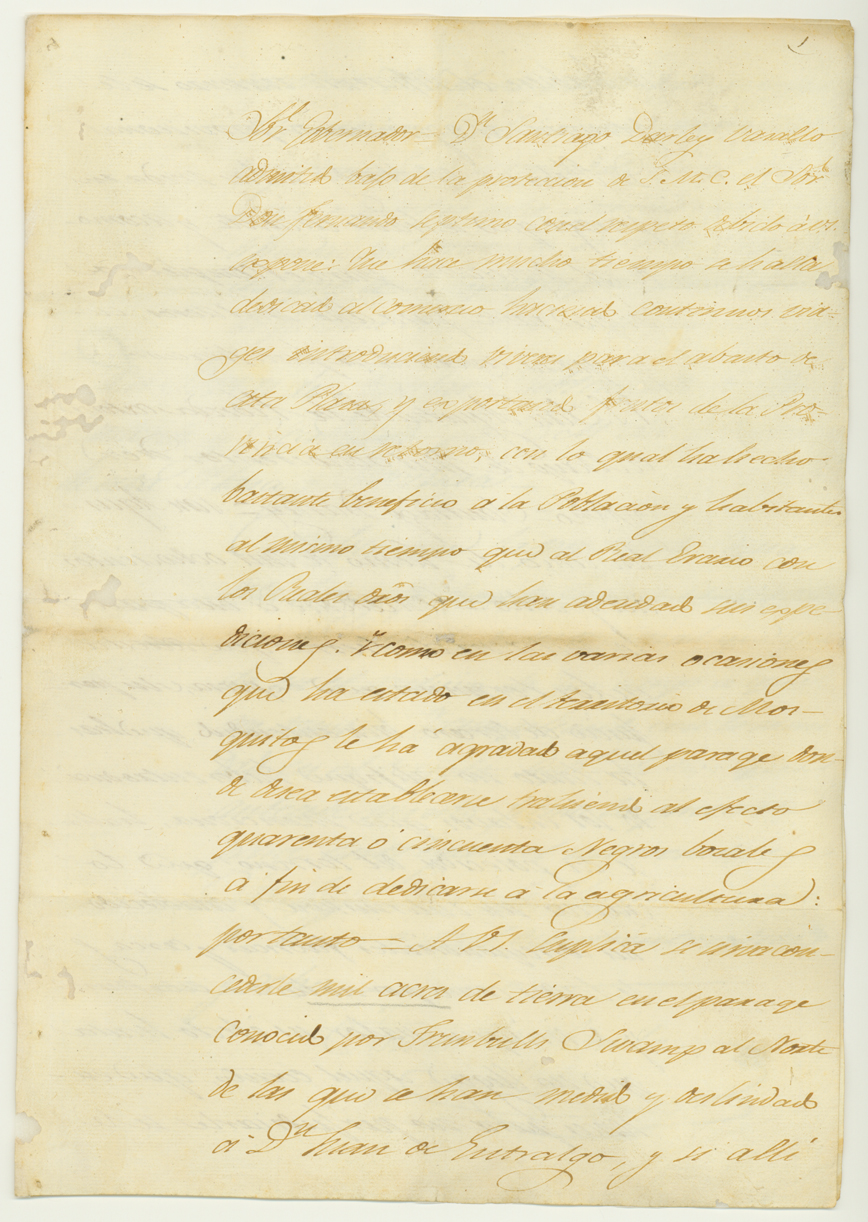 1
Sor. Gobernador = Dn. Santiago Darley vasallo
admitido bajo de la proteccion de S. M. C. el Sor.
Don fernando septimo con el respeto debido à VS.
expone: Que hace mucho tiempo se halla
dedicado al comercio haciendo continuos via-
ges introduciendo viveres para el abasto de
esta Plaza, y exportando frutos de la Pro-
vincia en retorno, con lo qual ha hecho
bastante beneficio a la Poblacion y habitantes
al mismo tiempo que al Real Erario con
los Reales dros que han adeudado sus expe-
diciones. Y como en las varias ocasiones
que ha estado en el territorio de Mos-
quitos le há agradado aquel parage don-
de desea establecerse trahiendo al efecto
quarenta ó cincuenta Negros bozales
a fin de dedicarse à la agricultura:
por tanto = A VS. Suplica se sirva con-
cederle mil acres de tierra en el parage
conocido por Trunbulls Swamp al Norte
de las que se han medido y deslindado
à Dn. Juan de Entralgo, y si allí